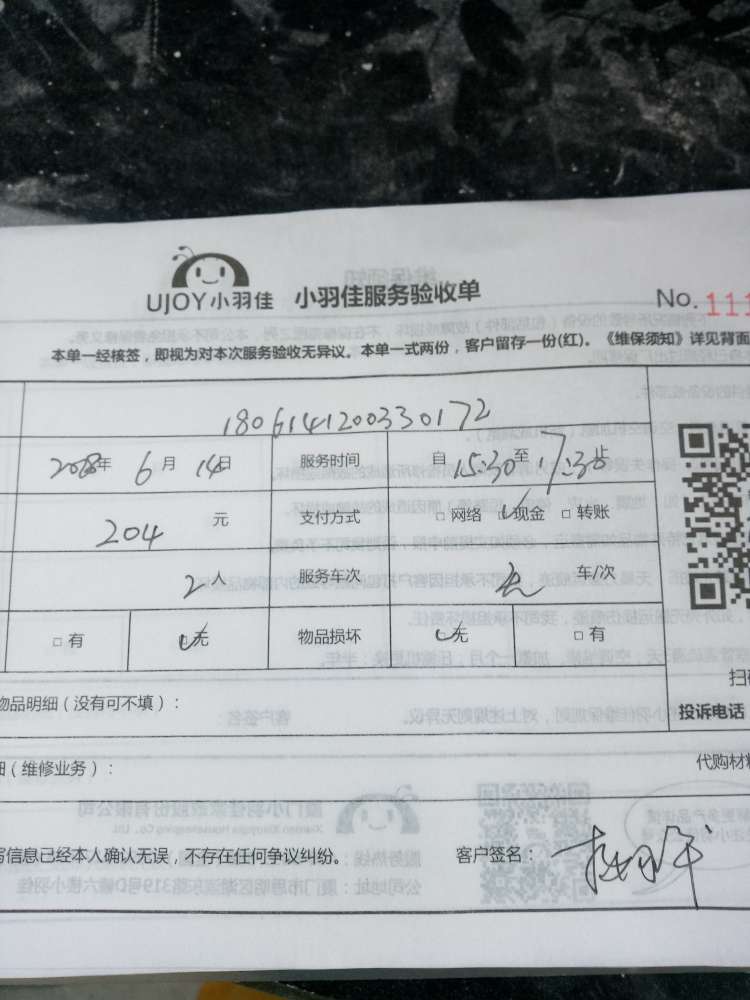 UJOY小羽佳 小羽佳服务验收单 No.111
本单一经核签，即视为对本次服务验收无异议。本单一式两份，客户留存一份(红)。《维保须知》详见背面
1806141200330172
2018年 6月 14日 服务时间 自 15:30至17:35
204 元 支付方式 □ 网络 □ 现金 □ 转账
2人 服务车次 无 车/次
□ 有 □ 无 物品损坏 □ 无 □ 有
物品明细（没有可不填）：
扫
投诉电话
（维修业务）： 代购材
信息已经本人确认无误，不存在任何争议纠纷。 客户签名：